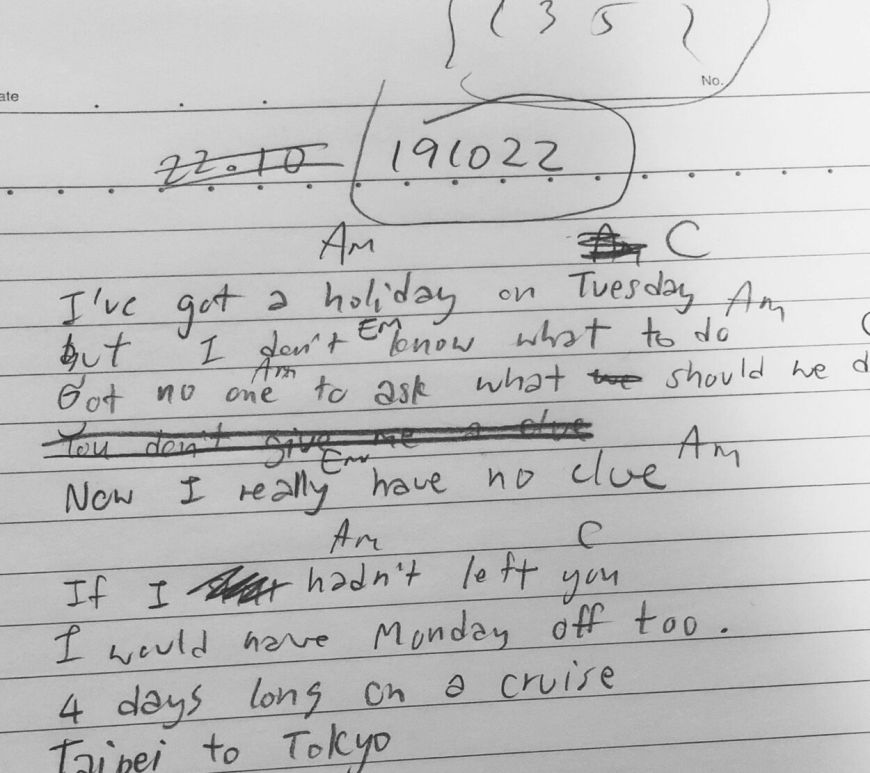 1 3 5 2
No.
ate
22.10 191022
Am C
I've got a holiday on Tuesday Am
but I don't Em know what to do C
Got no one Am to ask what should we d
You don't give me a clue
Now I really Em have no clue Am
Am C
If I hadn't left you
I would have Monday off too.
4 days long on a cruise
Taipei to Tokyo